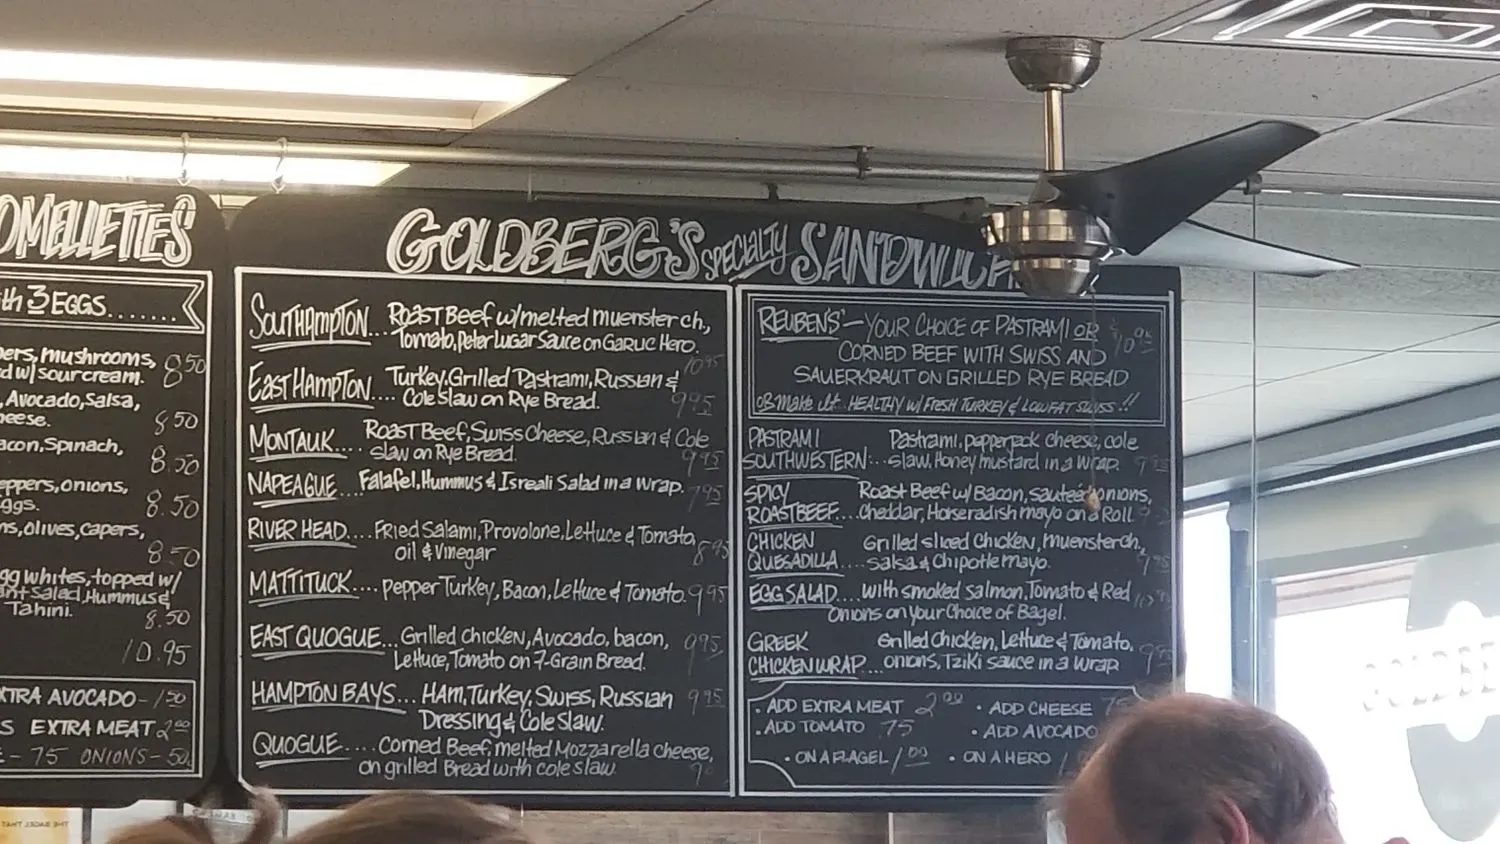 OMELLETTES
th 3 EGGS.......
ers, mushrooms,
d w/ sourcream. 8.50
, Avocado, Salsa,
eese. 8.50
acon, Spinach,
8.50
eppers, onions,
ggs. 8.50
ns, olives, capers,
8.50
gg whites, topped w/
ant salad, Hummus &
Tahini. 8.50
10.95
XTRA AVOCADO - 1.50
S EXTRA MEAT 2.00
E - 75 ONIONS - 50
GOLDBERG'S SPECIALTY SANDWICH
SOUTHAMPTON... Roast Beef w/ melted muenster ch,
Tomato, Peter Lugar Sauce on Garlic Hero. 10.95
EAST HAMPTON.... Turkey, Grilled Pastrami, Russian &
Coleslaw on Rye Bread. 9.95
MONTAUK.... Roast Beef, Swiss Cheese, Russian & Cole
slaw on Rye Bread. 9.95
NAPEAGUE.... Falafel, Hummus & Isreali Salad in a wrap. 7.95
RIVER HEAD.... Fried Salami, Provolone, Lettuce & Tomato,
oil & Vinegar 8.95
MATTITUCK.... pepper Turkey, Bacon, Lettuce & Tomato. 9.95
EAST QUOGUE... Grilled chicken, Avocado, bacon,
Lettuce, Tomato on 7-Grain Bread. 9.95
HAMPTON BAYS... Ham, Turkey, Swiss, Russian
Dressing & Coleslaw. 9.95
QUOGUE.... Corned Beef, melted Mozzarella cheese,
on grilled Bread with coleslaw.
REUBENS' - YOUR CHOICE OF PASTRAMI OR
CORNED BEEF WITH SWISS AND 10.95
SAUERKRAUT ON GRILLED RYE BREAD
OR Make it HEALTHY w/ FRESH TURKEY & LOWFAT SWISS !!
PASTRAMI Pastrami, pepperjack cheese, cole
SOUTHWESTERN... slaw, Honey mustard in a wrap.
SPICY Roast Beef w/ Bacon, sauteéd onions,
ROAST BEEF... Cheddar, Horseradish mayo on a Roll.
CHICKEN Grilled sliced Chicken, muenster ch,
QUESADILLA.... salsa & Chipotle mayo.
EGG SALAD.... with smoked salmon, Tomato & Red
Onions on your Choice of Bagel.
GREEK Grilled Chicken, Lettuce & Tomato,
CHICKEN WRAP... onions, Tziki sauce in a wrap
• ADD EXTRA MEAT 2.00 • ADD CHEESE
• ADD TOMATO .75 • ADD AVOCADO
• ON A FLAGEL 1.00 • ON A HERO